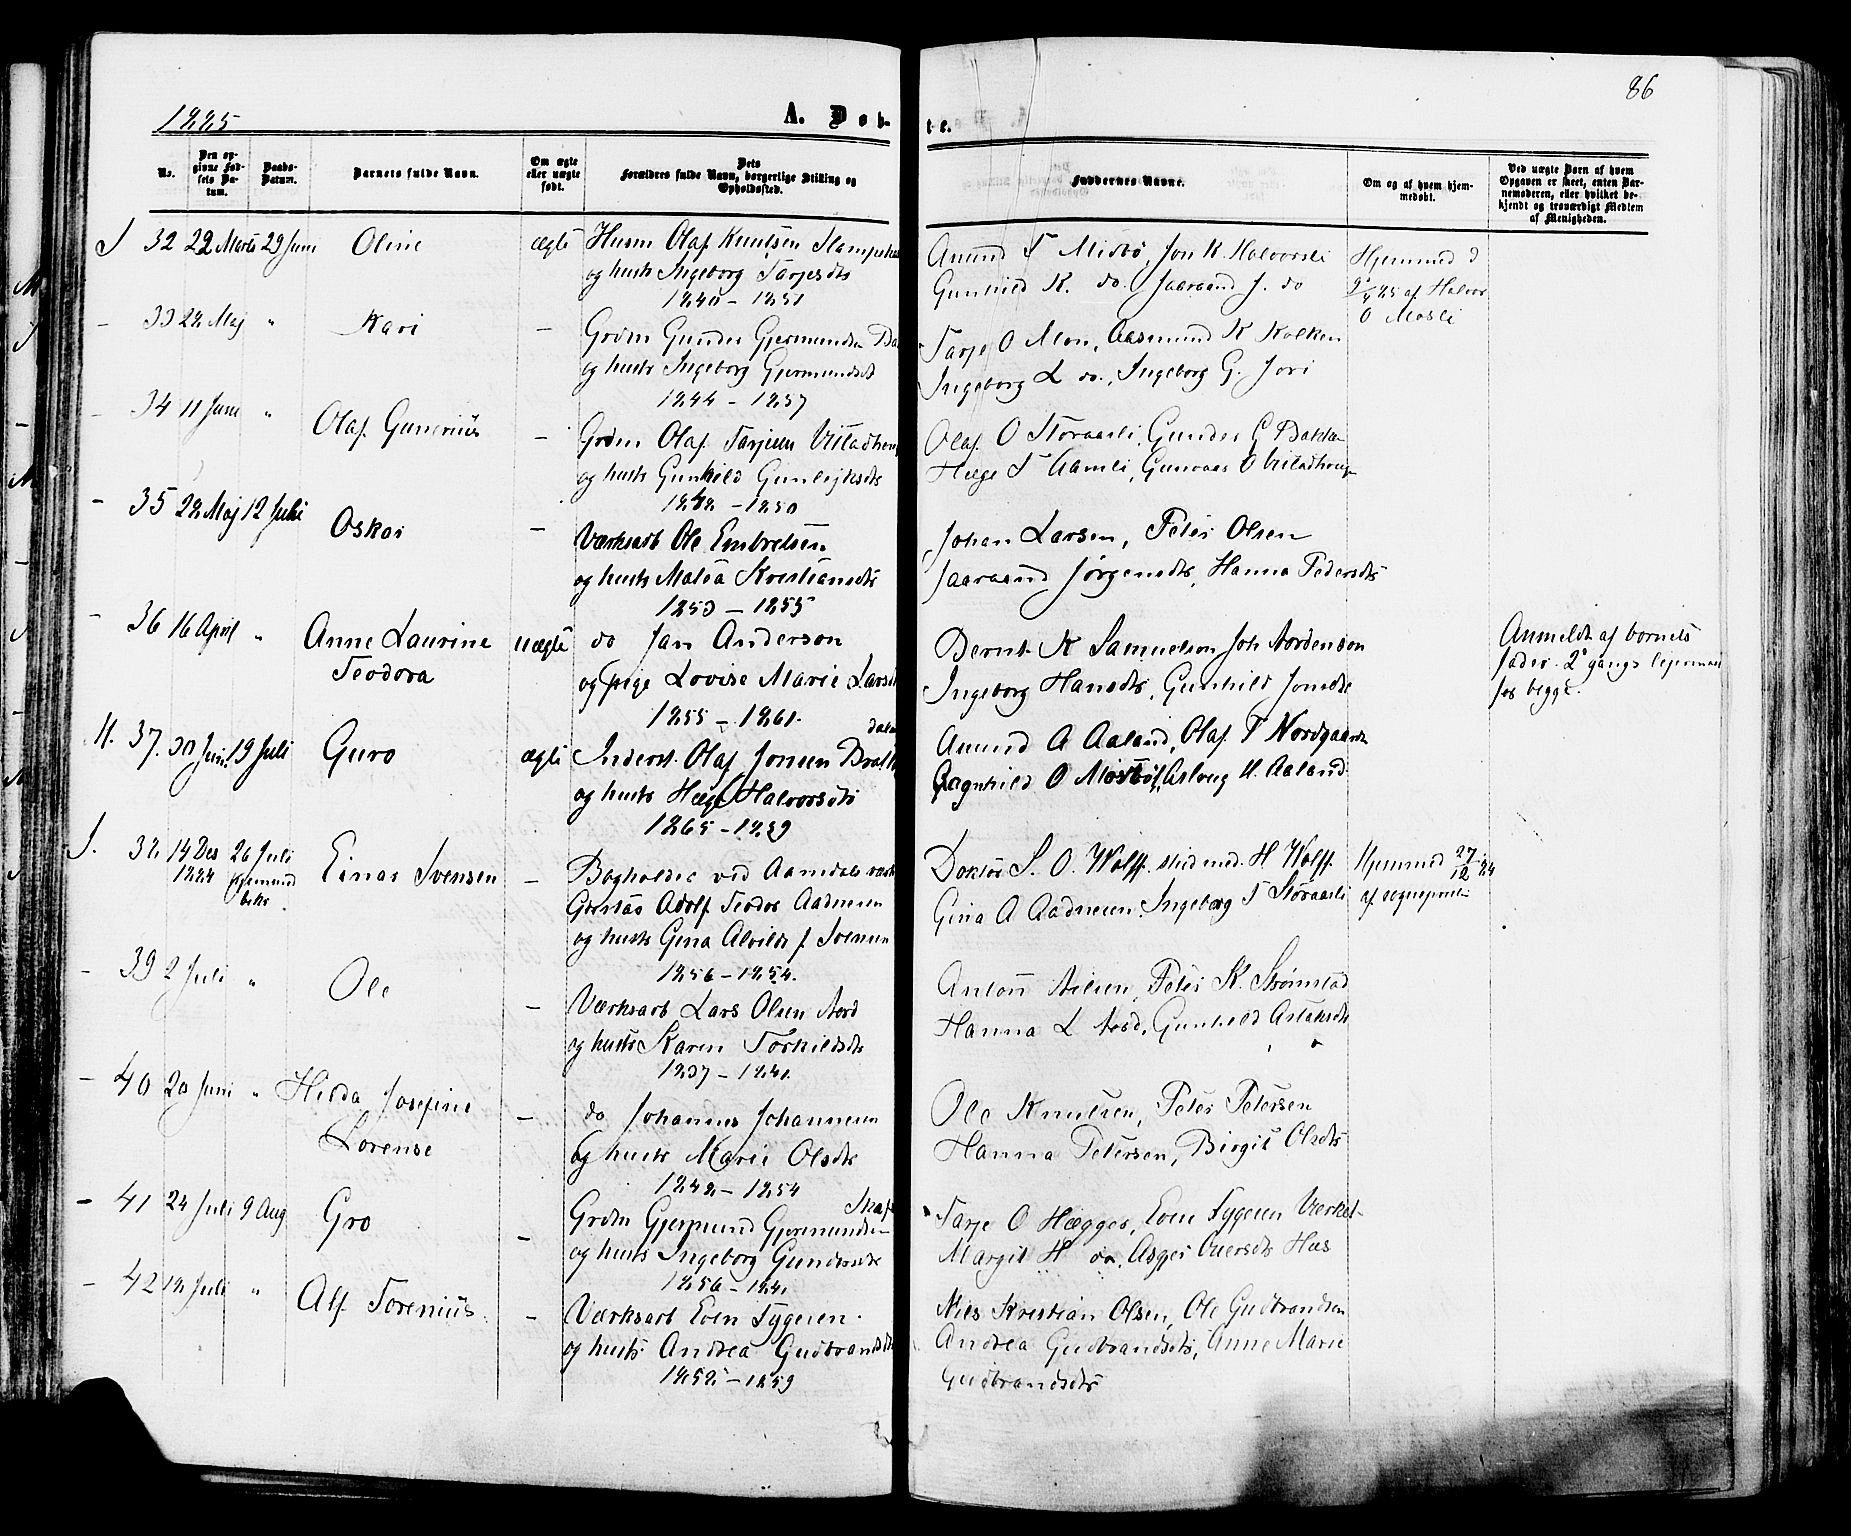 86
1885
A. Døb-
te.
No.
Den op-
givne Fød-
sels Da-
tum.
Daabs-
Datum.
Barnets fulde Navn.
Om ægte
eller uægte
født.
Dets
Forældres fulde Navn, borgerlige Stilling og
Opholdssted.
Faddernes Navne.
Om og af hvem hjem-
medøbt.
Ved uægte Børn af hvem
Opgaven er skeet, enten Bar-
nemoderen, eller hvilket be-
kjendt og troværdigt Medlem
af Menigheden.
32 22 Marts 29 Juni Oline ægte Husm Olaf Knutsen
og hust. Ingeborg Tarjesdt.
1840 - 1851
Anund T Misbø, Jon K. Halvorsli
Gunhild K. do. Jaaraand J. do
Hjemmed d
9/4 85 af Halvor
O Mosli
- 33 28 Maj " Kari - Grdm Gunder Gjermundsen
og hust. Ingeborg Gjermundsdt
1844 - 1857
Tarje O Moen, Aasmund K Kolken
Ingeborg L do., Ingeborg G. Jori
- 34 11 Juni " Olaf Gunerius - Grdm Olaf Tarjesen
og hust. Gunhild Gunleiksdt.
1848 - 1850
Olaf O Storaasli, Gunder G Bakken
Hæge T Aamli, Gunvaar O
- 35 28 Maj 12 Juli Oskar - Værksarb Ole Embretsen
og hust. Matea Kristiansdt.
1853 - 1855
Johan Larsen, Peter Olsen
Jaaraand Jørgensdt., Hanna Pedersdt.
- 36 16 April " Anne Laurine
Teodora uægte do Jan Anderson
og pige Lovise Marie Larsdt
1855 - 1861.
Bernt K Samuelson Joh Nordenson
Ingeborg Hansdt., Gunhild Jonsdt.
Anmeldt af barnets
fader. 2 gangs lejermaal
for begge.
M. 37. 30 Juni 19 Juli Guro ægte Inderst. Olaf Jonsen
og hust. Hæge Halvorsdt.
1865 - 1859
Anund A Aaland, Olaf T Nordgaarden
Ragnhild O Mosbø, Aslaug H. Aaland
J. 38 14 Des
1884 26 Juli
hjemmed
bekr. Einar Svensen - Bogholder ved Aamdals værk
Gustav Adolf Teodor Aadnesen
og hust. Gina Alvilde f Svensen
1856 - 1854.
Doktor S. O. Wolff, stud med. H Wolff.
Gina A Aadnesen, Ingeborg T Storaasli
Hjemmed 27/12 84
af sognepresten
- 39 2 Juli " Ole - Værksarb Lars Olsen Nord
og hust. Karen Torkildsdt.
1837 - 1841.
Anton Nilsen, Peter K. Strømstad
Hanna L Nord, Gunhild Aslaksdt.
- 40 20 Juni " Hilda Josefine
Lorense - do Johannes Johannesen
og hust. Marie Olsdt.
1848 - 1854
Ole Knutsen, Peter Petersen
Hanna Petersen, Birgit Olsdt.
- 41 24 Juli 9 Aug Gro - Grdm Gjermund Gjermundsen
og hust. Ingeborg Gundersdt.
1856 - 1841
Tarje O Hægges, Even Tygesen Værket
Margit H do. Asger Overdt. Hus
- 42 18 Juli " Alf Torenius - Værksarb Even Tygesen.
og hust. Andrea Gudbrandsdt.
1858 - 1859
Niels Kristian Olsen, Ole Gudbrandsen
Andrea Gudbrandsdt., Anne Marie
Gudbrandsdt.